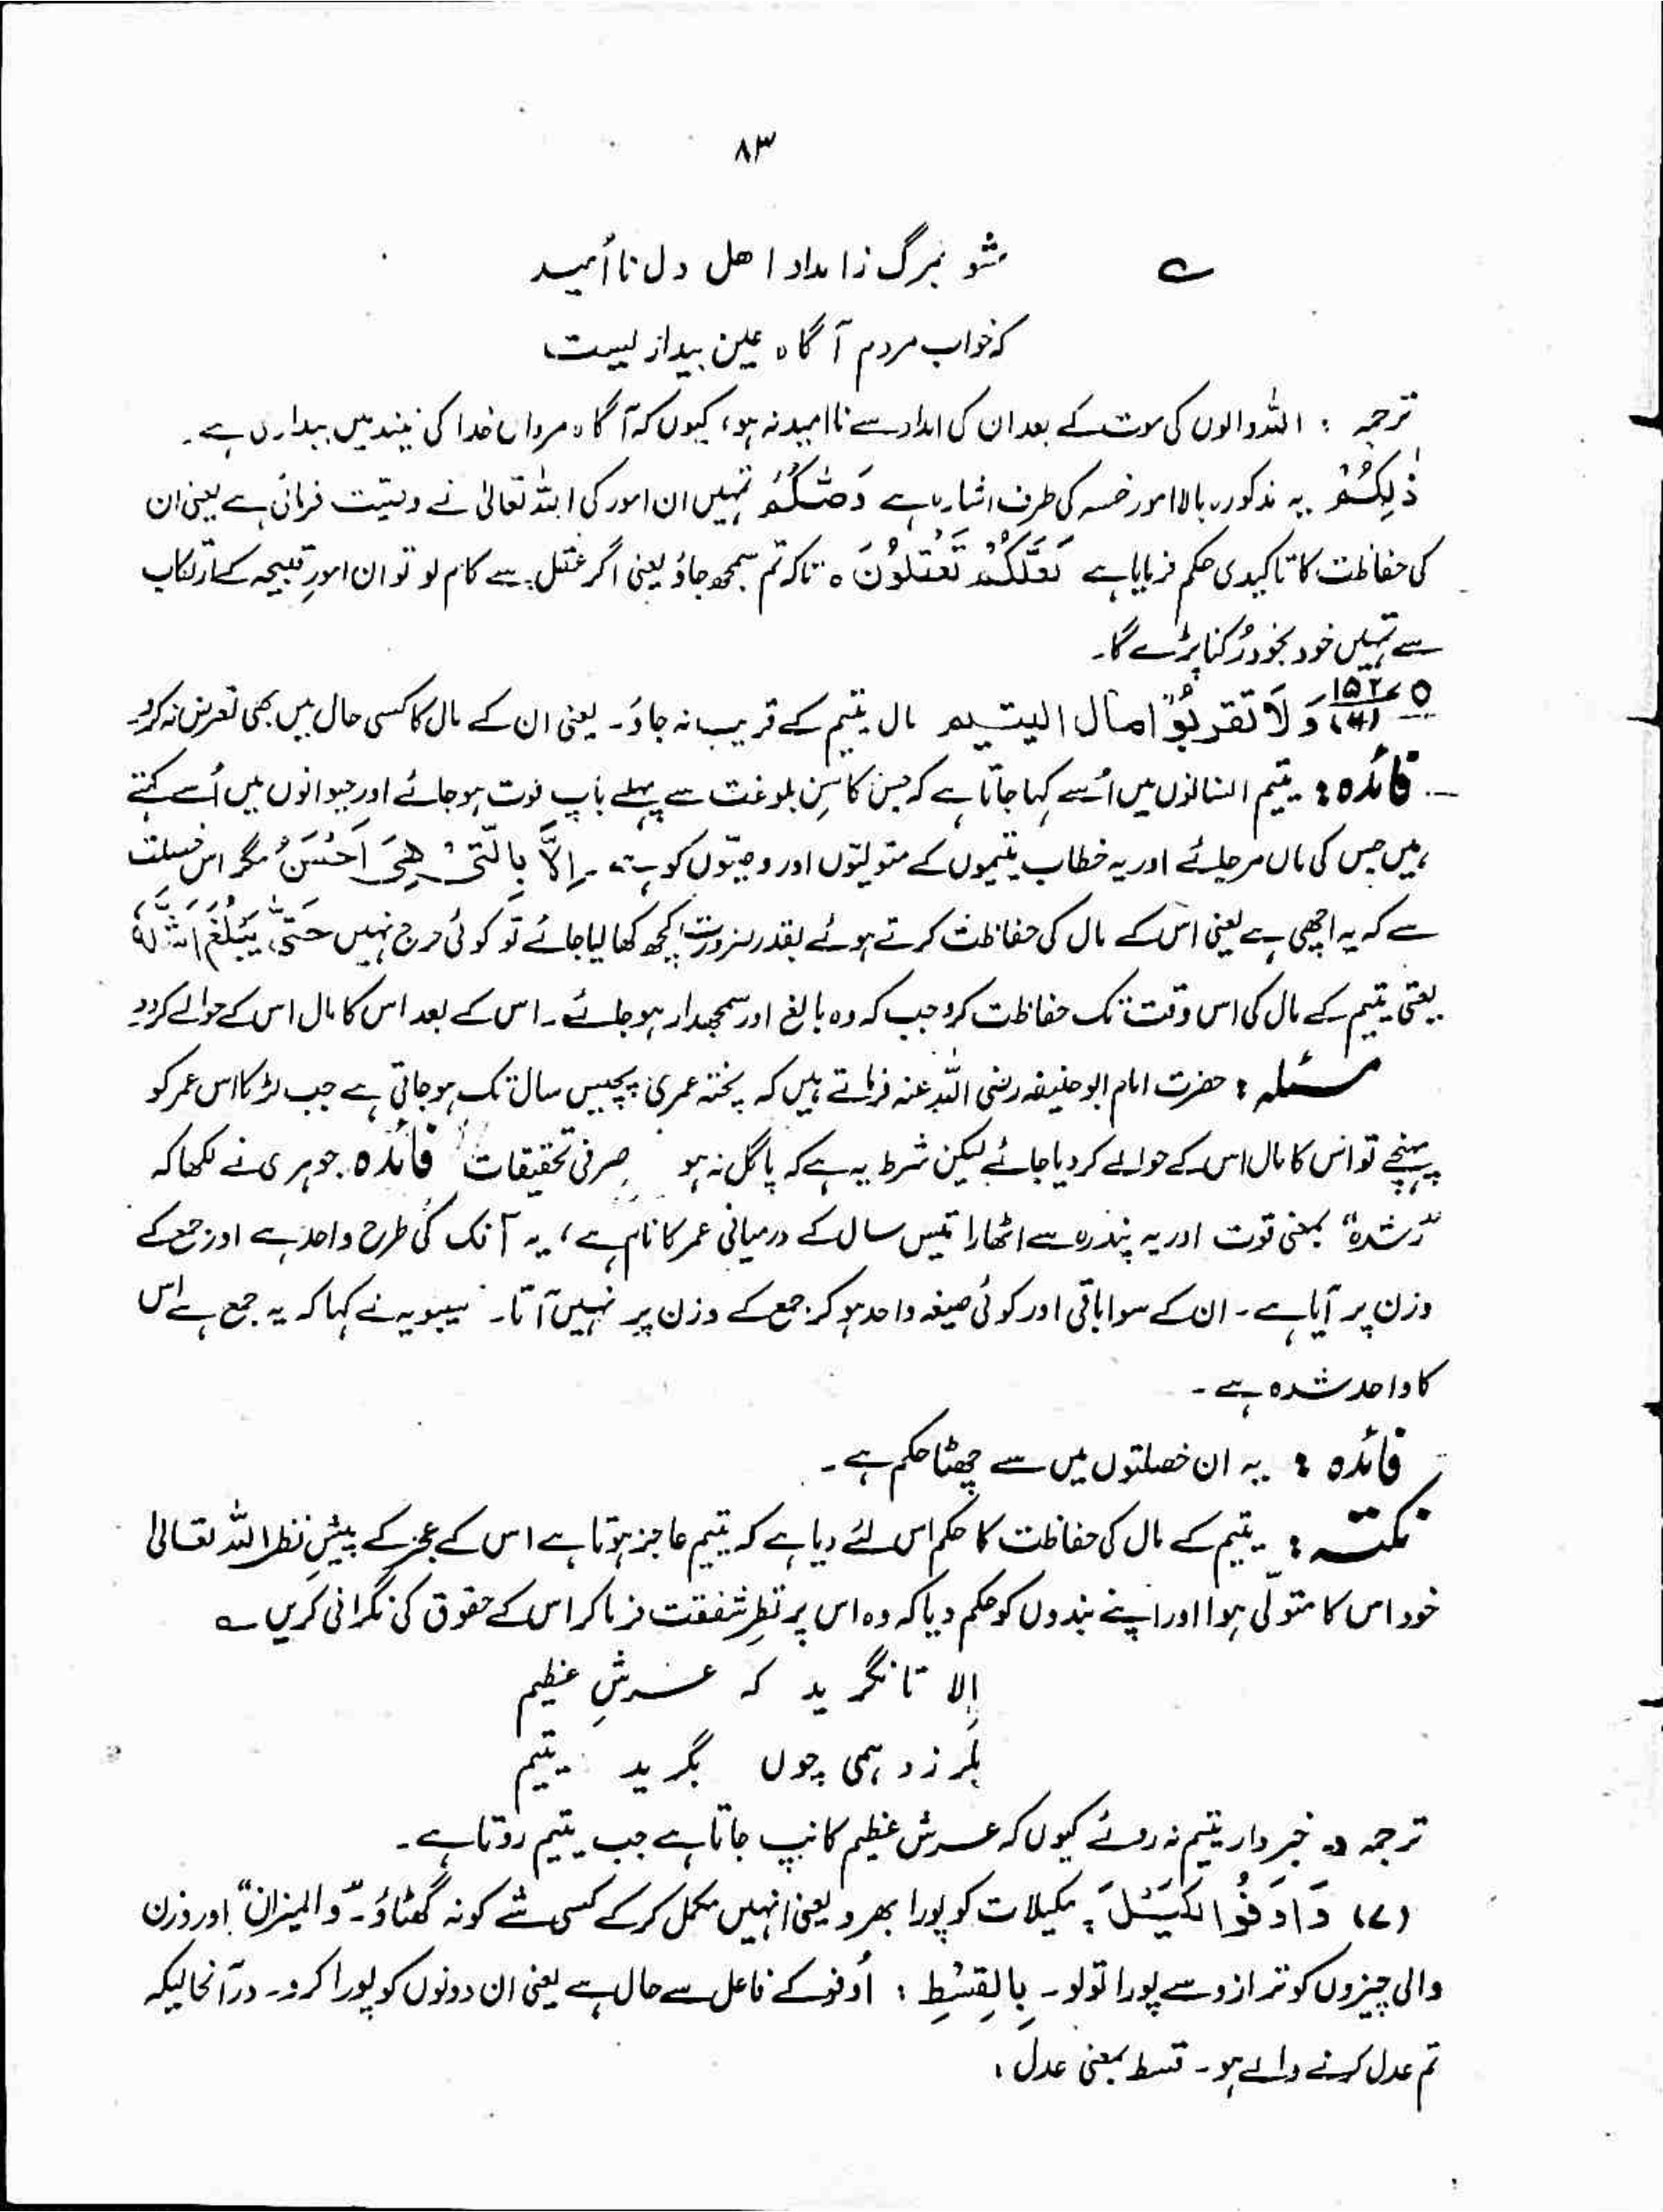 ۸۳
؎ مشو بمرگ ز امداد اھل دل نا اُمید
کہ خواب مردم آگاہ عین بیداریست
ترجمہ : اللہ والوں کی موت کے بعد ان کی امداد سے نا امید نہ ہو، کیوں کہ آگاہ مردانِ خدا کی نیند میں بیداری ہے۔
ذٰلِکُمْ یہ مذکورہ بالا امورِ خمسہ کی طرف اشارہ ہے وَصّٰکُمْ تمہیں ان امور کی اللہ تعالیٰ نے وصیّت فرمائی ہے یعنی ان
کی حفاظت کا تاکیدی حکم فرمایا ہے لَعَلَّکُمْ تَعْقِلُوْنَ ہ تاکہ تم سمجھ جاؤ یعنی اگر عقل سے کام لو تو ان امورِ قبیحہ کے ارتکاب
سے تمہیں خود بخود رُکنا پڑے گا۔
۱۵۲ (۶) وَلَا تَقْرَبُوْا مَالَ الیتیم مال یتیم کے قریب نہ جاؤ۔ یعنی ان کے مال کا کسی حال میں بھی تعرض نہ کرو۔
فائدہ : یتیم انسانوں میں اُسے کہا جاتا ہے کہ جس کا سِن بلوغت سے پہلے باپ فوت ہو جائے اور حیوانوں میں اُسے کہتے
ہیں جس کی ماں مر جائے اور یہ خطاب یتیموں کے متولیّوں اور وصیّوں کو ہے۔ اِلَّا بِالَّتِیْ ھِیَ اَحْسَنُ مگر اس خصلت
سے کہ یہ اچھی ہے یعنی اس کے مال کی حفاظت کرتے ہوئے بقدر ضرورت کچھ کھا لیا جائے تو کوئی حرج نہیں حَتّٰی یَبْلُغَ اَشُدَّہٗ
یعنی یتیم کے مال کی اس وقت تک حفاظت کرو جب کہ وہ بالغ اور سمجھدار ہو جائے۔ اس کے بعد اس کا مال اس کے حوالے کردو
مسئلہ : حضرت امام ابو حنیفہ رضی اللہ عنہ فرماتے ہیں کہ پختہ عمری پچیس سال تک ہو جاتی ہے جب لڑکا اس عمر کو
پہنچے تو اس کا مال اس کے حوالے کر دیا جائے لیکن شرط یہ ہے کہ پاگل نہ ہو صرفی تحقیقات فائدہ۔ جوہری نے لکھا کہ
”رشدہ“ بمعنی قوت اور یہ پندرہ سے اٹھارا تیس سال کے درمیانی عمر کا نام ہے، یہ آنک کی طرح واحد ہے اور جمع کے
وزن پر آیا ہے۔ ان کے سوا باقی اور کوئی صیغہ واحد ہو کر جمع کے وزن پر نہیں آتا۔ سیبویہ نے کہا کہ یہ جمع ہے اس
کا واحد شدہ ہے۔
فائدہ : یہ ان خصلتوں میں سے چھٹا حکم ہے۔
نکتہ : یتیم کے مال کی حفاظت کا حکم اس لئے دیا ہے کہ یتیم عاجز ہوتا ہے اس کے عجز کے پیشِ نظر اللہ تعالیٰ
خود اس کا متولّی ہوا اور اپنے بندوں کو حکم دیا کہ وہ اس پر نظرِ شفقت فرما کر اس کے حقوق کی نگرانی کریں ؎
اِلا تا نگرید کہ عرشِ عظیم
بلرزد ہمی چوں بگرید یتیم
ترجمہ : خبردار یتیم نہ روئے کیوں کہ عرش عظیم کانپ جاتا ہے جب یتیم روتا ہے۔
(۷) وَاَوْفُوا الْکَیْلَ، مکیلات کو پورا بھرو یعنی انہیں مکمل کر کے کسی شے کو نہ گھٹاؤ۔ ”والمیزان“ اور وزن
والی چیزوں کو ترازو سے پورا تولو۔ بِالْقِسْطِ : اُوفوا کے فاعل سے حال ہے یعنی ان دونوں کو پورا کرو۔ درآنحالیکہ
تم عدل کرنے والے ہو۔ قسط بمعنی عدل،